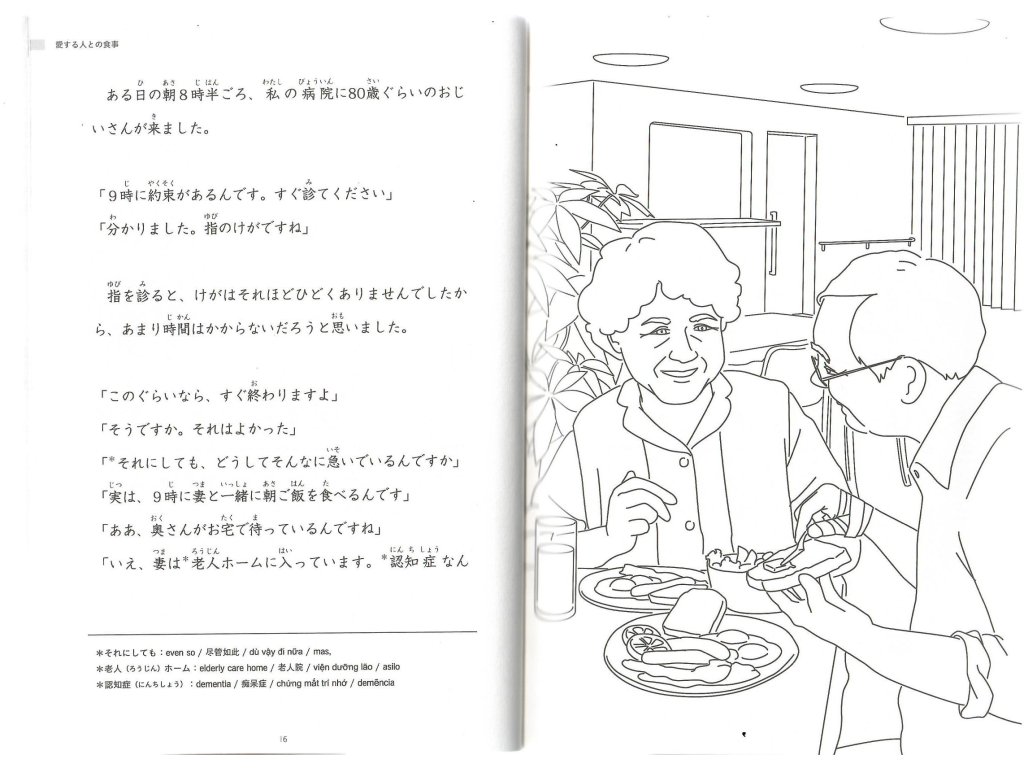 愛する人との食事
ある日の朝8時半ごろ、私の病院に80歳ぐらいのおじ
いさんが来ました。
「9時に約束があるんです。すぐ診てください」
「分かりました。指のけがですね」
指を診ると、けがはそれほどひどくありませんでしたか
ら、あまり時間はかからないだろうと思いました。
「このぐらいなら、すぐ終わりますよ」
「そうですか。それはよかった」
「*それにしても、どうしてそんなに急いでいるんですか」
「実は、9時に妻と一緒に朝ご飯を食べるんです」
「ああ、奥さんがお宅で待っているんですね」
「いえ、妻は*老人ホームに入っています。*認知症なん
*それにしても：even so / 尽管如此 / dù vậy đi nữa / mas,
*老人（ろうじん）ホーム：elderly care home / 老人院 / viện dưỡng lão / asilo
*認知症（にんちしょう）：dementia / 痴呆症 / chứng mất trí nhớ / demência
16